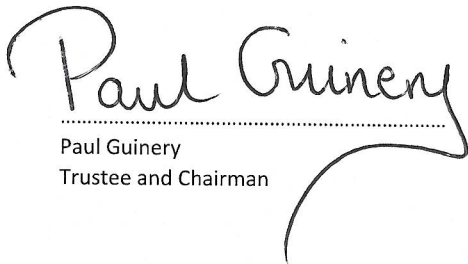 Paul Guinery
Paul Guinery
Trustee and Chairman